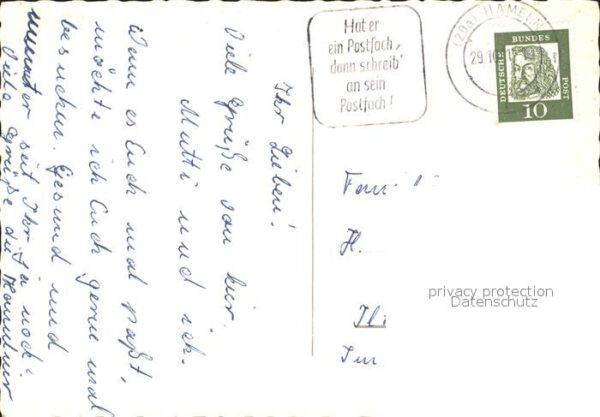 Hat er
ein Postfach,
dann schreib'
an sein
Postfach!
(20a) HAMELN
29.10.
DEUTSCHE BUNDESPOST
10
Ihr Lieben!
Viele Grüße von hier.
Mutti und ich.
Wenn es Euch mal paßt,
möchte ich Euch gerne mal
besuchen. Gesund und
munter seit Ihr ja noch.
Viele Grüße
Fam
H.
privacy protection
Datenschutz